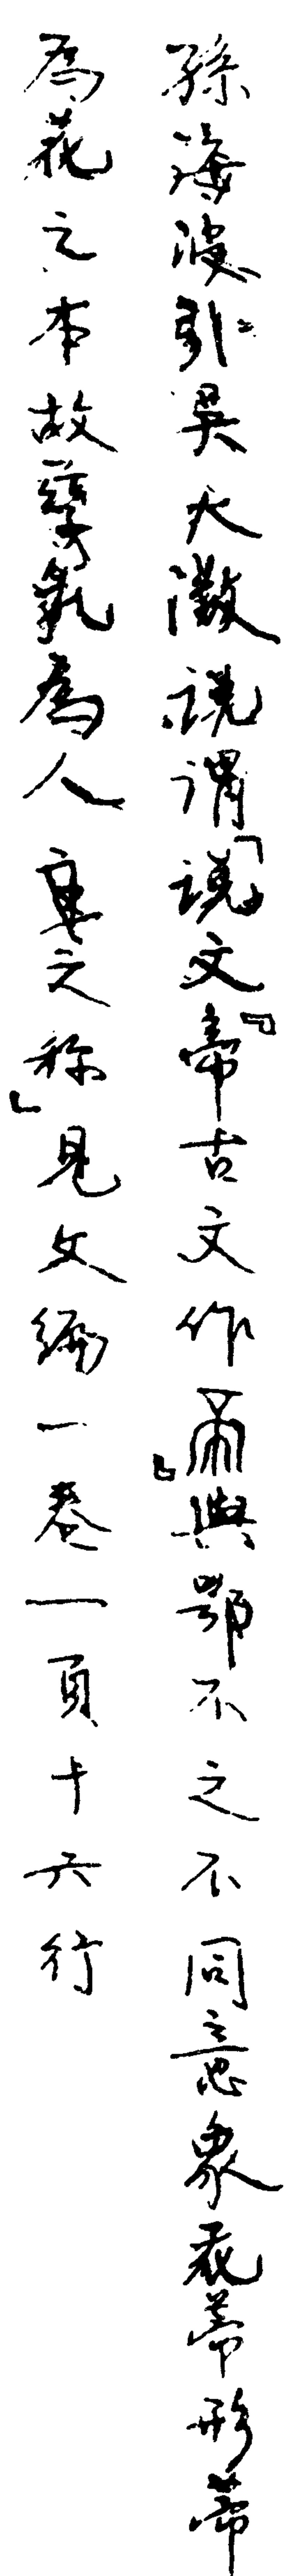 孫海波引吳大澂說謂「說文『帝古文作𠫦』與鄂不之不同意象花蒂形蒂
為花之本故孳乳為人章之称」見文編一卷一頁十六行